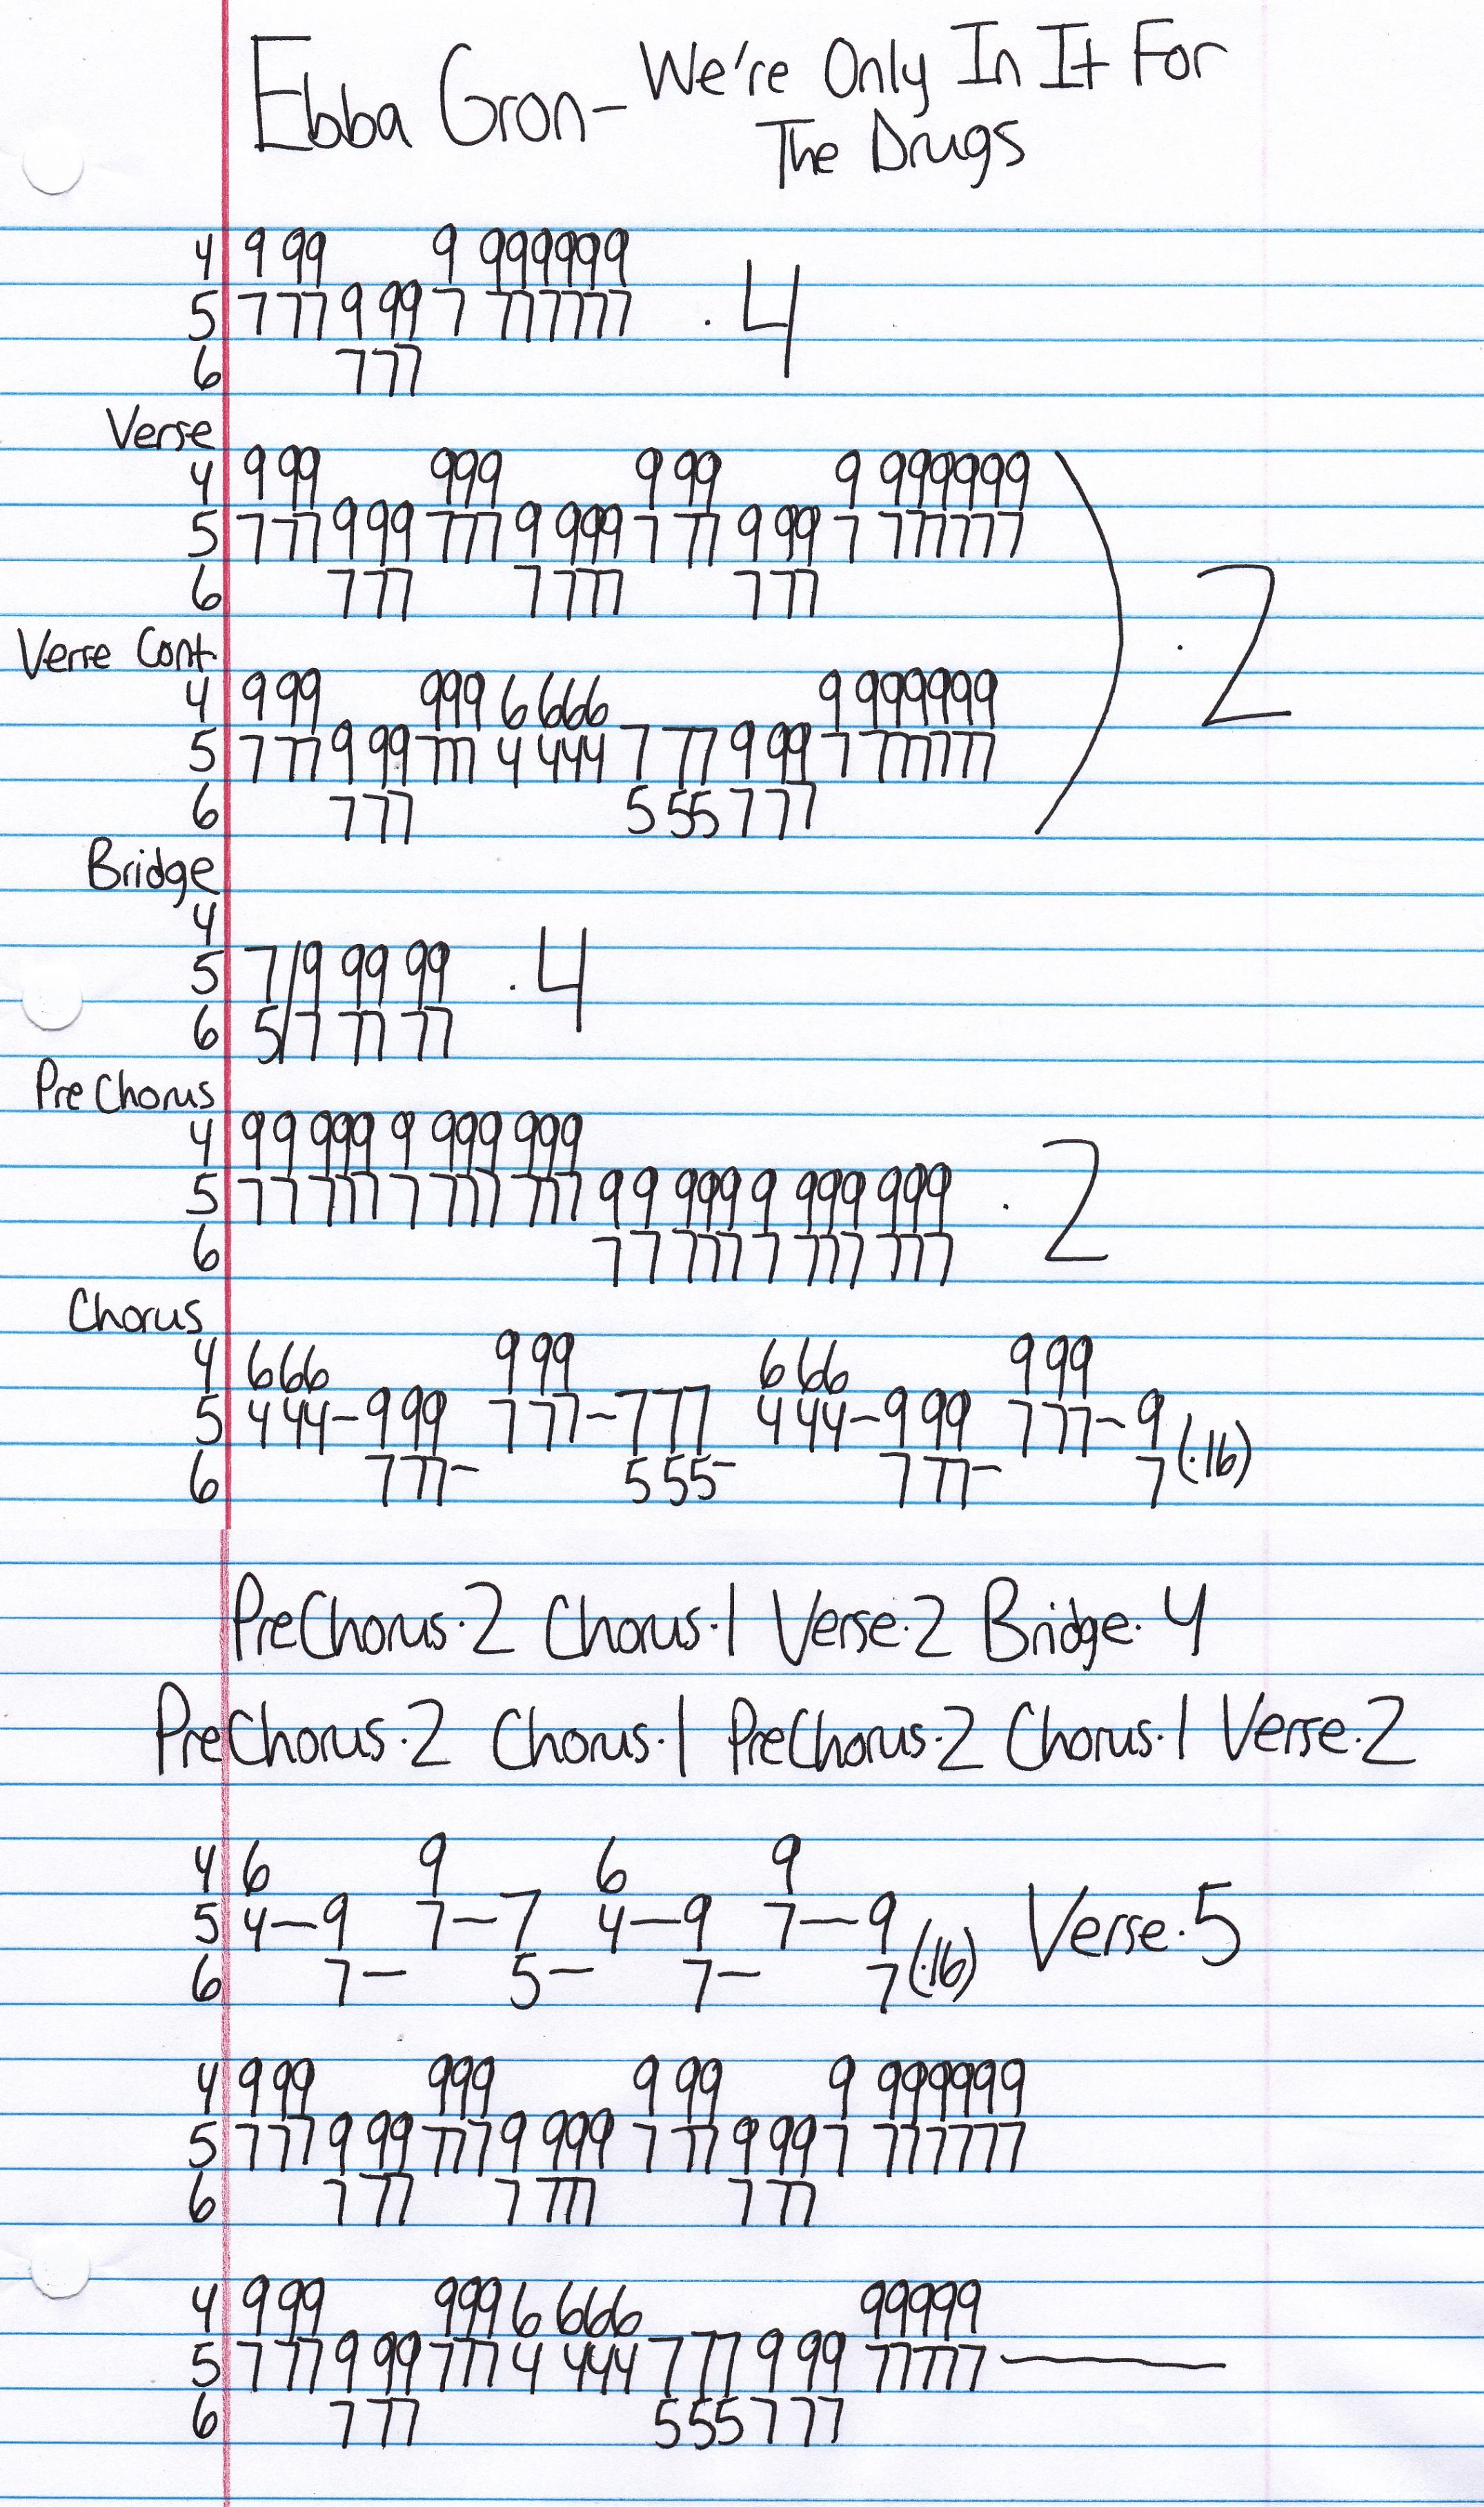 Ebba Gron- We're Only In It For
The Drugs
4 9 99 9 999999
5 7 777 9 99 7 777777 .4
6 777
Verse
4 9 99 999 9 99 9 999999
5 7 77 9 99 777 9 999 7 77 9 99 7 777777
6 7 77 7 777 7 77
.2
Verse Cont.
4 9 99 999 6 666 9 999999
5 7 77 9 99 777 4 444 7 77 9 99 7 777777
6 7 77 5 55 7 77
Bridge
4
5 7/9 99 99 .4
6 5/7 77 77
PreChorus
4 99 999 9 999 999
5 77 777 7 777 777 99 999 9 999 999 .2
6 77 777 7 777 777
Chorus
4 6 66 9 99 6 66 9 99
5 4 44-9 99 7 77-7 77 4 44-9 99 7 77-9
6 7 77- 5 55- 7 77- 7 (.16)
PreChorus.2 Chorus.1 Verse.2 Bridge.4
PreChorus.2 Chorus.1 PreChorus.2 Chorus.1 Verse.2
4 6 9 6 9
5 4-9 7-7 4-9 7-9 Verse.5
6 7- 5- 7- 7 (.16)
4 9 99 999 9 99 9 999999
5 7 77 9 99 777 9 999 7 77 9 99 7 777777
6 7 77 7 777 7 77
4 9 99 999 6 666 99999
5 7 77 9 99 777 4 444 7 77 9 99 77777-
6 7 77 5 55 7 77